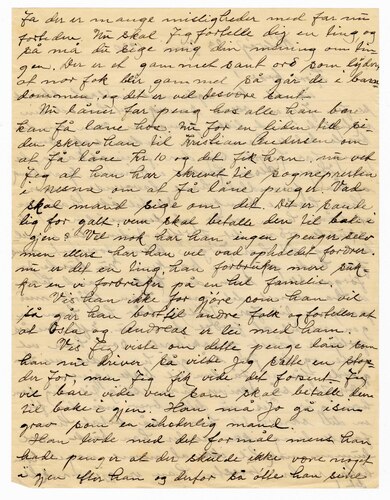 Ja der er mange misligheder med far nu
fortiden. Nu skal Jeg fortelle dig en ting og
så må du sige mig din mening om tin
gen. Der er et gammelt sant ord som lyder
at nor folk blir gammel så går de i barn
dommen, og det er vel desvære sant.
Nu låner far peng hos alle han bare
kan få låne hos. Nu for en liden tid si
den skrev han til Kristian Andersen om
at få låne Kr 10 og det fik han, nu vet
Jeg at han har skrevet til sognepresten
om at få låne penger. Vad
skal mand sige om det. Dit er
lig for galt, vem skal betalle den tilbake i
gjen? Vel nok har han ingen penger selv
men ellers har han vel vad han fordrer.
nu er det en ting, han forbruker mere
en vi forbruker på en hel familie.
Vis han ikke for gjøre som han vil
så går han bort til andre folk og forteller at
at Osla og Andreas er lei med ham.
Vis Jeg viste om dette penge lån som
han nu driver så vilde Jeg sætte en stop
der for, men Jeg fik vide det forsent. Jeg
vil bare vide vem som skal betalle den
tilbake i gjen. Han må Jo gå i sin
grav som en uhederlig mand.
Han gjorde med det formål mens han
hade penger at der skulde ikke være noget
i gjen efter han og derfor så